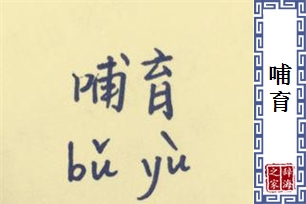 哺育
bǔ yù
哺育
辞海之家